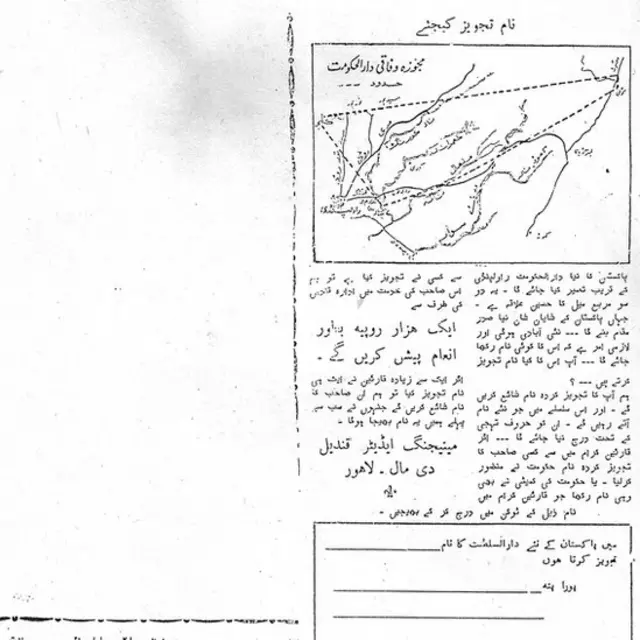 نام تجویز کیجئے
مجوزہ وفاقی دارالحکومت
حدود ----
پاکستان کا نیا دارالحکومت راولپنڈی
کے قریب تعمیر کیا جائے گا - یہ دو
سو مربع میل کا حسین علاقہ ہے -
جہاں پاکستان کے شایان شان نیا صدر
مقام بنے گا --- نئی آبادی ہوگی اور
لازمی امر ہے کہ اس کا کوئی نام رکھا
جائے گا --- آپ اس کا کیا نام تجویز
کرتے ہیں --- ؟
ہم آپ کا تجویز کردہ نام شائع کریں
گے - اور اس سلسلے میں جو نئے نام
آتے رہیں گے - ان کو حروف تہجی
کے تحت درج کیا جائے گا --- اگر
قارئین کرام میں سے کسی صاحب کا
تجویز کردہ نام حکومت نے منظور
کرلیا - یا حکومت کی کمیٹی نے بھی
وہی نام رکھا جو قارئین کرام میں
سے کسی نے تجویز کیا ہے تو ہم
اس صاحب کی خدمت میں ادارہ قندیل
کی طرف سے
ایک ہزار روپیہ بطور
انعام پیش کریں گے -
اگر ایک سے زیادہ قارئین نے ایک ہی
نام تجویز کیا تو ہم ان صاحب کا
نام شائع کریں گے جنہوں نے سب سے
پہلے ہمیں یہ نام بھیجا ہوگا -
مینیجنگ ایڈیٹر قندیل
دی مال - لاہور
نام ذیل کے ٹوکن میں درج کر کے بھیجیں -
میں پاکستان کے نئے دارالسلطنت کا نام
تجویز کرتا ہوں
پورا پتہ